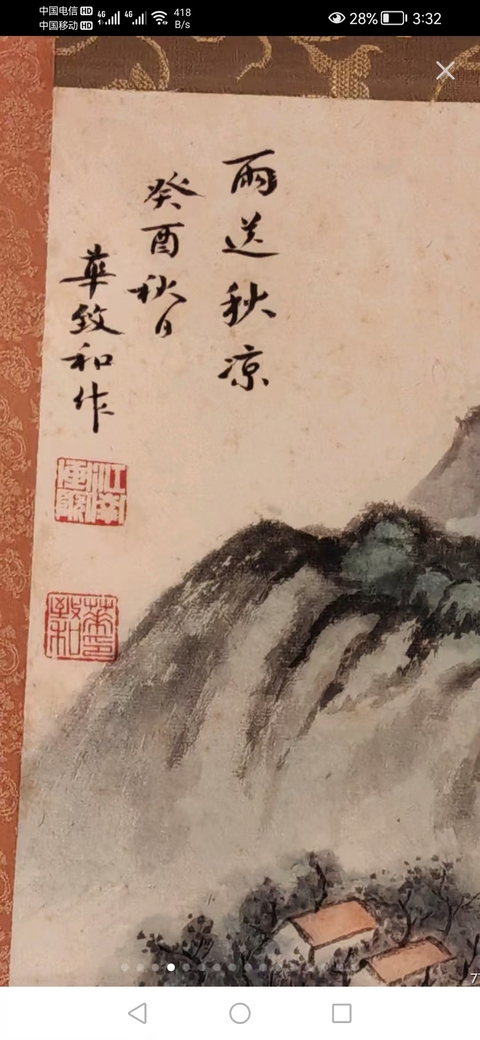 中国电信 HD 4G 4G 418 28% 3:32
中国移动 HD B/s
雨送秋凉
癸酉秋日
華致和作